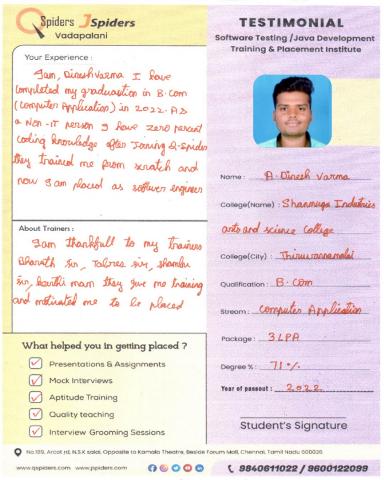 QSpiders JSpiders
Vadapalani
TESTIMONIAL
Software Testing /Java Development
Training & Placement Institute
Your Experience :
Iam, Dinesh Varma I have
completed my graduation in B.com
(Computer Application) in 2022. As
a Non-IT person I have zero percent
coding knowledge after Joining Q-Spiders
they trained me from scratch and
now Iam placed as software engineer
About Trainers :
Iam thankfull to my trainers
Bharath sir, Tabres sir, shambu
sir, karthi mam they give me training
and motivated me to be placed
What helped you in getting placed ?
Presentations & Assignments
Mock Interviews
Aptitude Training
Quality teaching
Interview Grooming Sessions
Name : A. Dinesh Varma
College(Name) : Shanmuga Industries
arts and science College
College(City) : Thiruvannamalai
Qualification : B.com
Stream : Computer Application
Package : 3 LPA
Degree % : 71%
Year of passout : 2022
Student's Signature
No.199, Arcot rd, N.S.K salai, Opposite to Kamala Theatre, Beside Forum Mall, Chennai, Tamil Nadu 600026
www.qspiders.com www.jspiders.com
9840611022 / 9600122099